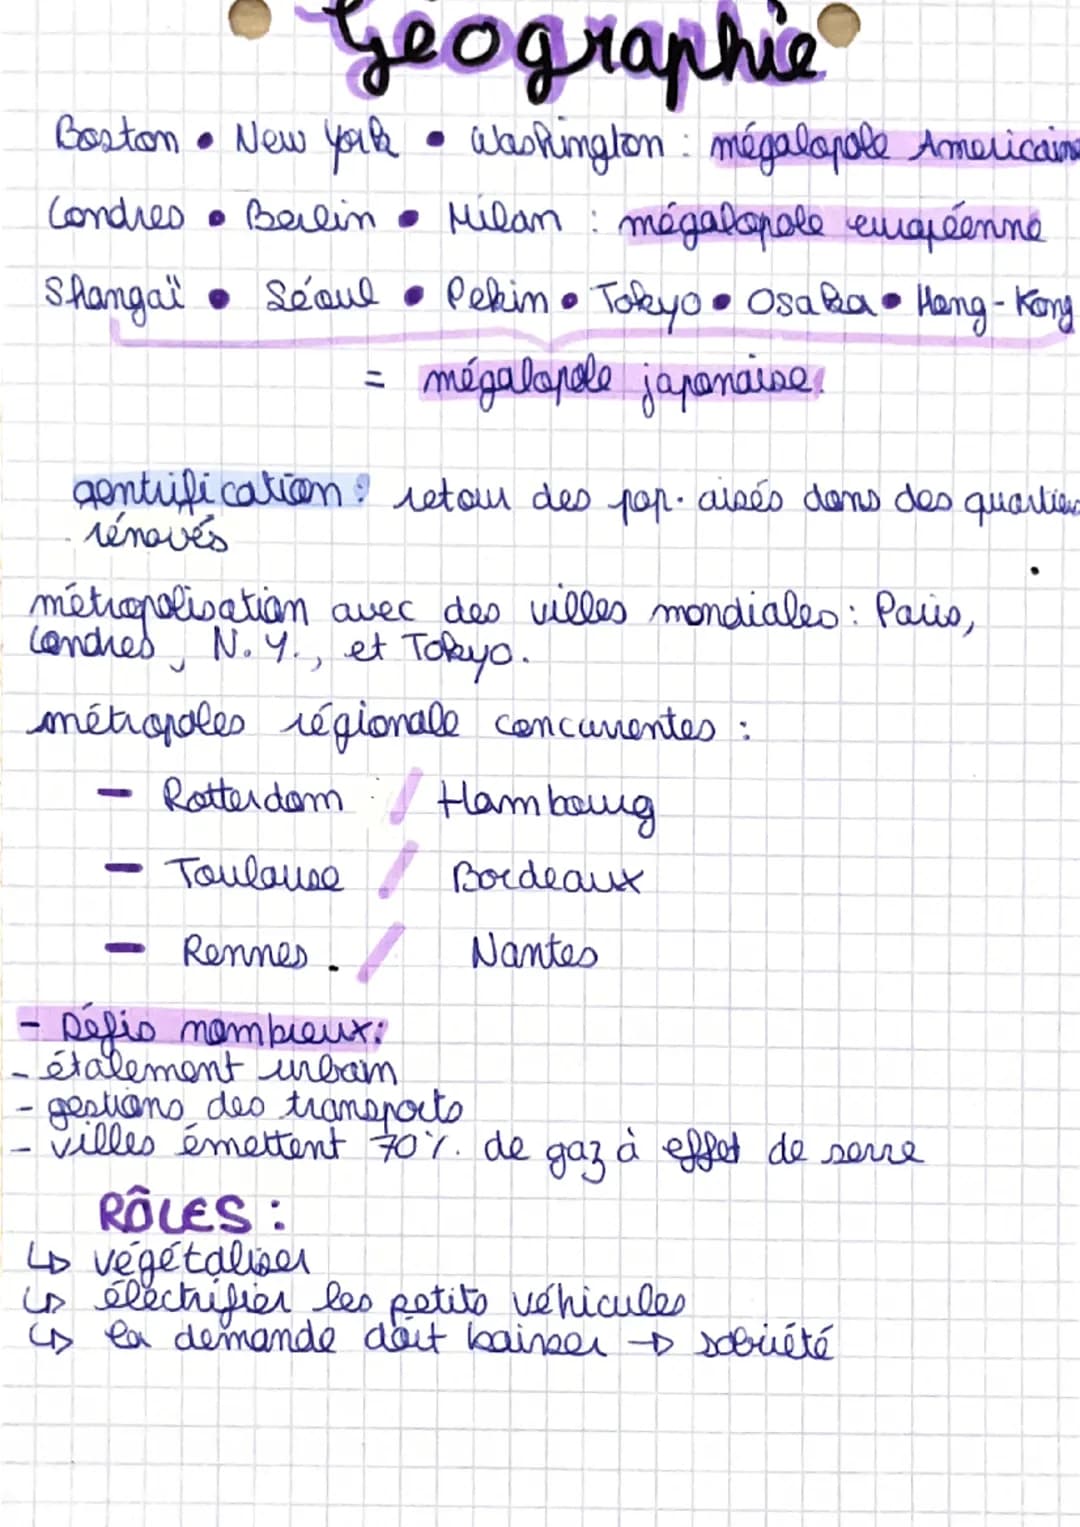 Géographie
Boston • New York • Washington : mégalopole Americaine
Londres • Berlin • Milan : mégalopole européenne
Shangaï • Séoul • Pekin • Tokyo • Osaka • Hong-Kong
= mégalopole japonaise.
gentrification : retour des pop. aisés dans des quartiers
rénovés
métropolisation avec des villes mondiales : Paris,
Londres, N.Y., et Tokyo.
métropoles régionale concurrentes :
- Rotterdam / Hambourg
- Toulouse / Bordeaux
- Rennes. / Nantes
- Défis nombreux:
- étalement urbain
- gestions des transports
- villes émettent 70% de gaz à effet de serre
RÔLES :
↳ végétaliser
↳ électrifier les petits véhicules
↳ la demande doit baisser → sobriété